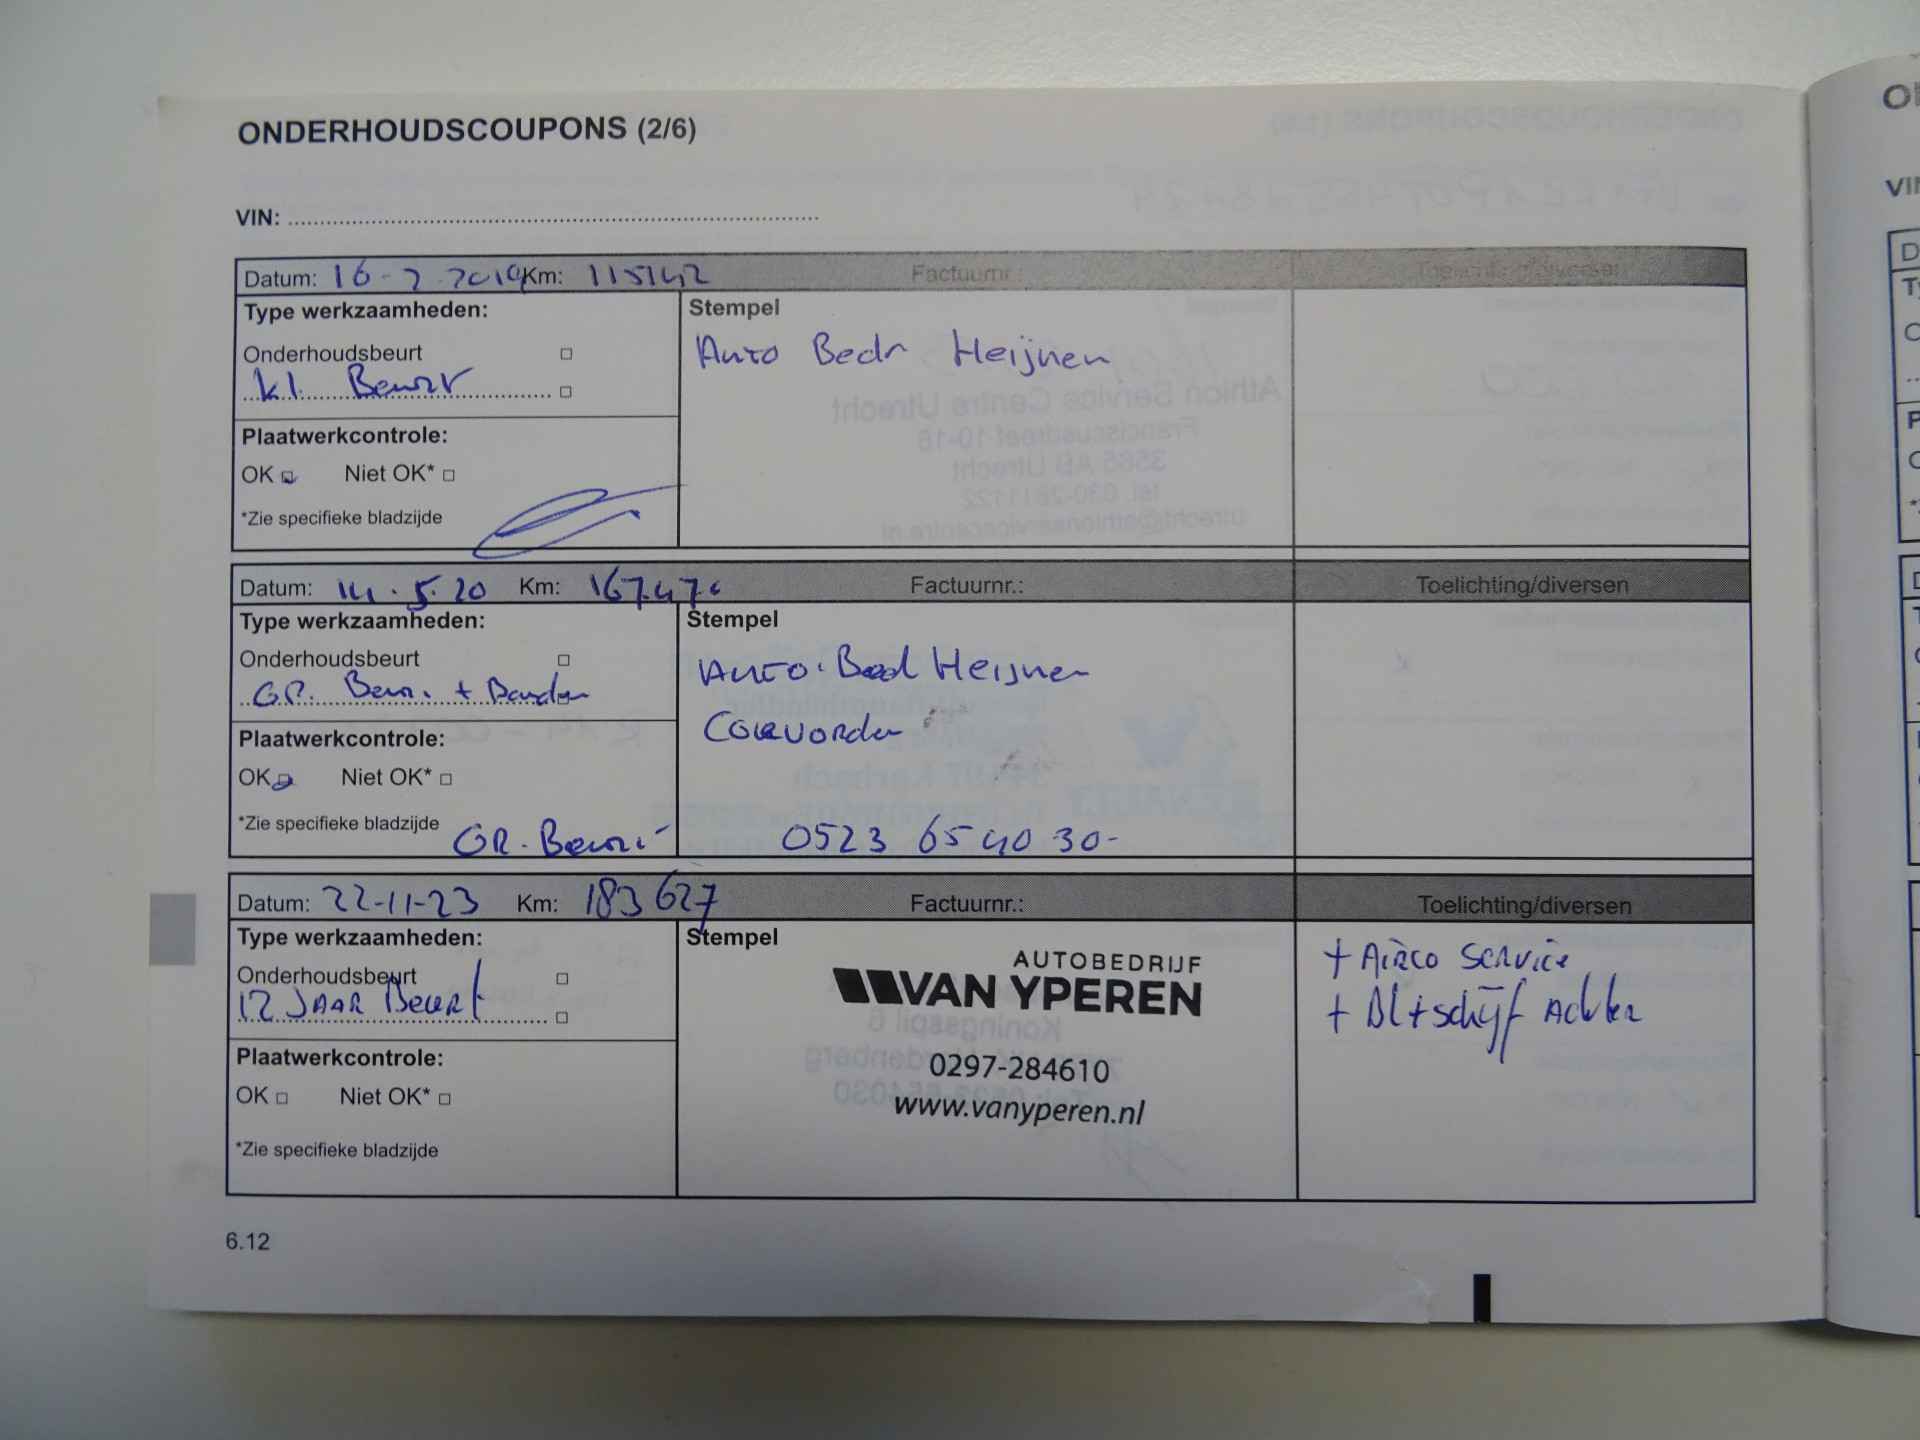 ONDERHOUDSCOUPONS (2/6)
VIN:
Datum: 16-7-2019 Km: 115142 Factuurnr.: Toelichting/diversen
Type werkzaamheden:
Stempel
Onderhoudsbeurt
Auto Bedr Heijnen
kl. Beurt
Plaatwerkcontrole:
OK Niet OK*
*Zie specifieke bladzijde
Datum: 14.5.20 Km: 167.47 Factuurnr.: Toelichting/diversen
Type werkzaamheden:
Stempel
Onderhoudsbeurt
Auto. Bed Heijnen
GR. Beur. + Banden
Coevorden
Plaatwerkcontrole:
OK Niet OK*
*Zie specifieke bladzijde
GR. Beur.
0523 65 40 30-
Datum: 22-11-23 Km: 183627 Factuurnr.: Toelichting/diversen
Type werkzaamheden:
Stempel
Onderhoudsbeurt
12 JAAR Beurt
Plaatwerkcontrole:
OK Niet OK*
*Zie specifieke bladzijde
AUTOBEDRIJF
VAN YPEREN
0297-284610
www.vanyperen.nl
+ Airco service
+ Bl+schijf Achter
6.12